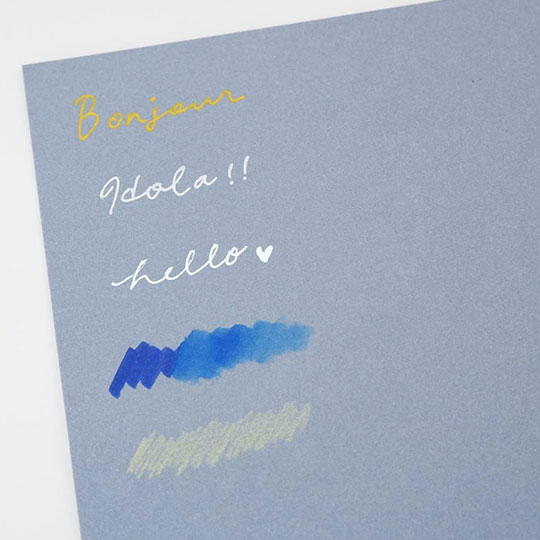 Bonjour
Hola!!
hello♥